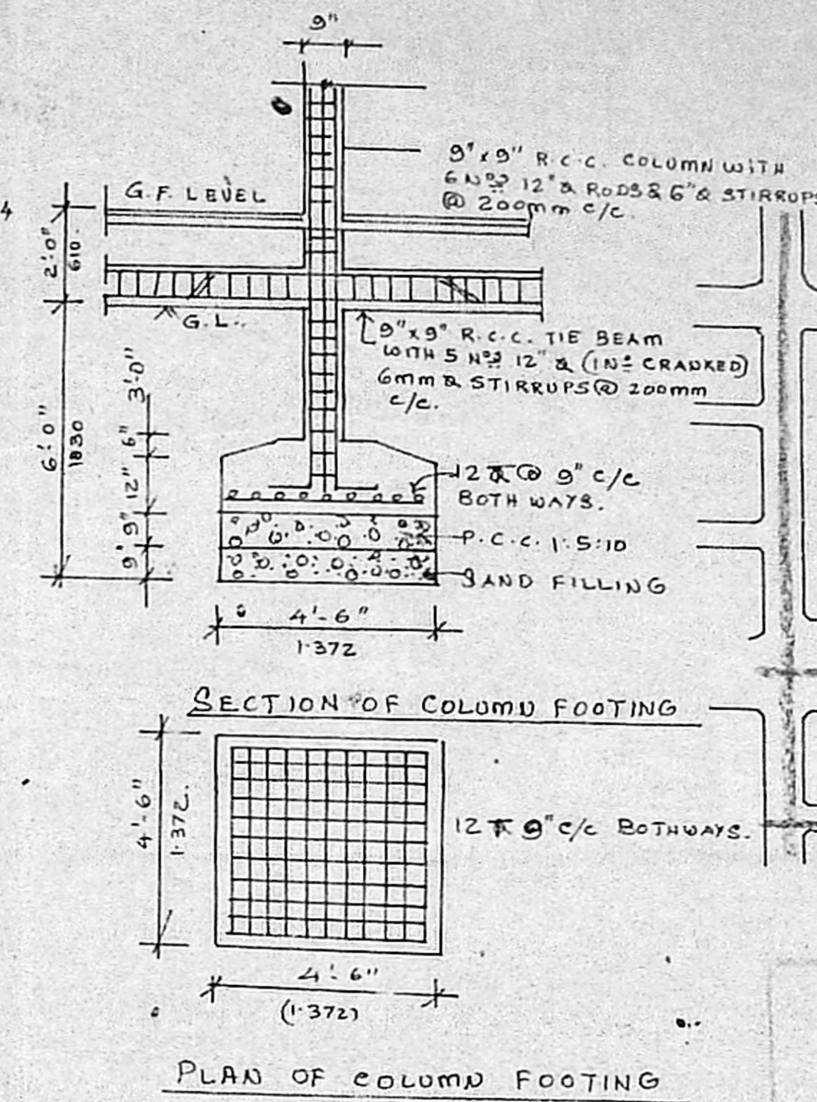 9"
9"x9" R.C.C. COLUMN WITH
6 Nos 12" & RODS & 6" & STIRRUPS
@ 200mm c/c.
4
G.F. LEVEL
2'.0"
610.
G.L.
9"x9" R.C.C. TIE BEAM
WITH 5 Nos 12" & (1No CRANKED)
6mm & STIRRUPS @ 200mm
c/c.
6'.0"
1830
3'.0"
6"
12"
9"
9"
12 @ 9" c/c
BOTH WAYS.
P.C.C. 1:5:10
SAND FILLING
4'-6"
1.372
SECTION OF COLUMN FOOTING
4'-6"
1.372.
12 9" c/c BOTHWAYS.
4'-6"
(1.372)
PLAN OF COLUMN FOOTING